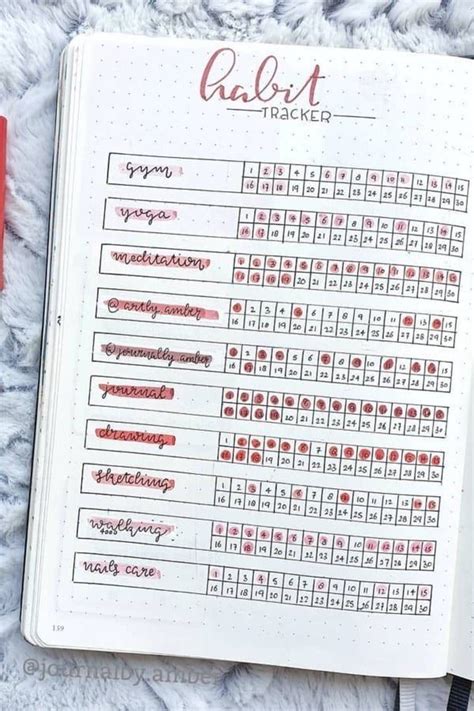 habit
TRACKER
gym
1 2 3 4 5 6 7 8 9 10 11 12 13 14 15
16 17 18 19 20 21 22 23 24 25 26 27 28 29 30
yoga
1 2 3 4 5 6 7 8 9 10 11 12 13 14 15
16 17 18 19 20 21 22 23 24 25 26 27 28 29 30
meditation
1 2 3 4 5 6 7 8 9 10 11 12 13 14 15
16 17 18 19 20 21 22 23 24 25 26 27 28 29 30
@artby.amber
1 2 3 4 5 6 7 8 9 10 11 12 13 14 15
16 17 18 19 20 21 22 23 24 25 26 27 28 29 30
@journalby.amber
1 2 3 4 5 6 7 8 9 10 11 12 13 14 15
16 17 18 19 20 21 22 23 24 25 26 27 28 29 30
journal
1 2 3 4 5 6 7 8 9 10 11 12 13 14 15
16 17 18 19 20 21 22 23 24 25 26 27 28 29 30
drawing
1 2 3 4 5 6 7 8 9 10 11 12 13 14 15
16 17 18 19 20 21 22 23 24 25 26 27 28 29 30
sketching
1 2 3 4 5 6 7 8 9 10 11 12 13 14 15
16 17 18 19 20 21 22 23 24 25 26 27 28 29 30
walking
4000
1 2 3 4 5 6 7 8 9 10 11 12 13 14 15
16 17 18 19 20 21 22 23 24 25 26 27 28 29 30
nails care
1 2 3 4 5 6 7 8 9 10 11 12 13 14 15
16 17 18 19 20 21 22 23 24 25 26 27 28 29 30
159
@journalby.amber